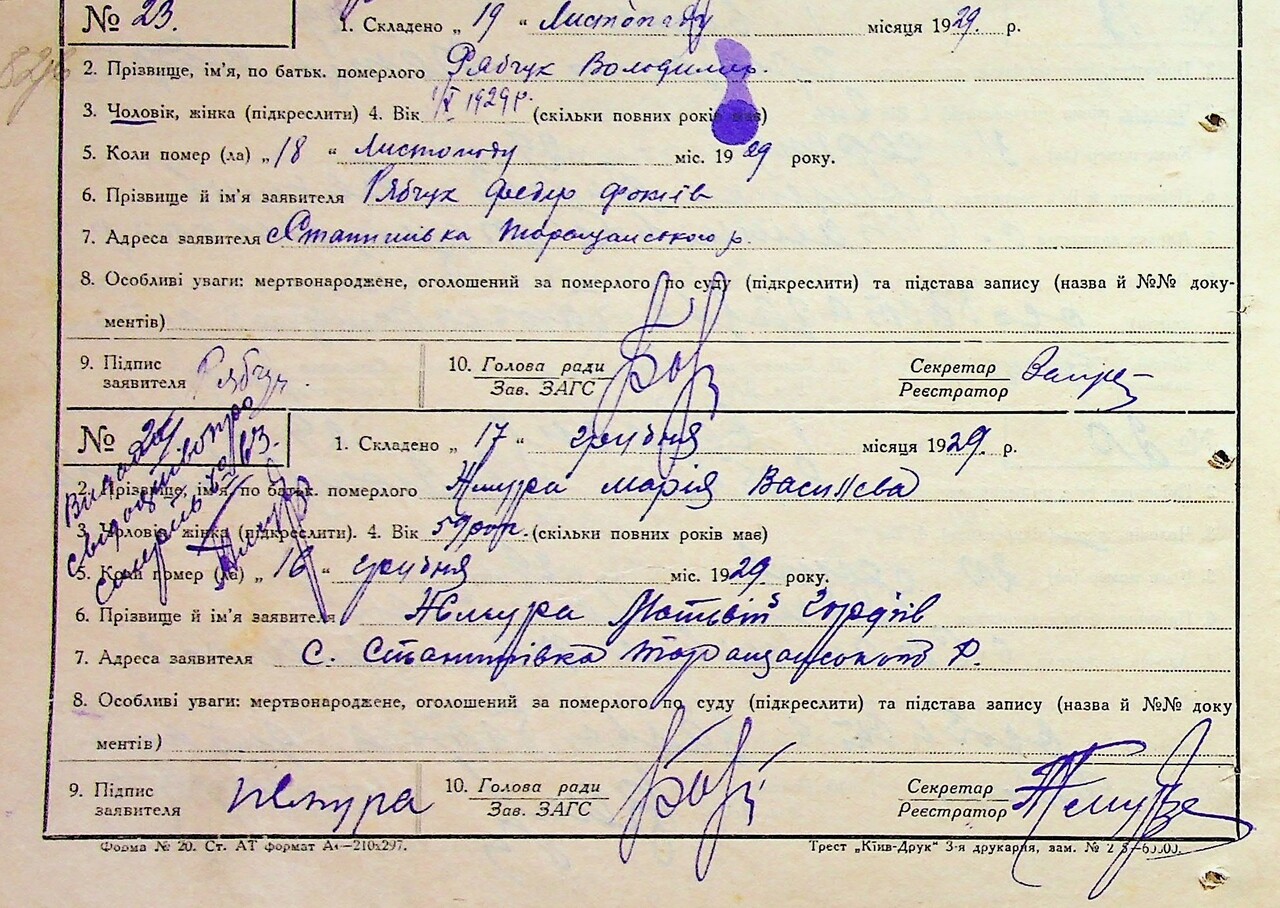 № 23. 1. Складено „ 19 “ Листопаду місяця 1929. р.
2. Прізвище, ім'я, по батьк. померлого Рябчук Володимир.
3. Чоловік, жінка (підкреслити) 4. Вік 1/X 1929 р. (скільки повних років має)
5. Коли помер (ла) „ 18 “ Листопаду міс. 1929 року.
6. Прізвище й ім'я заявителя Рябчук Федір Фокіїв
7. Адреса заявителя с Станишівка Таращанського р.
8. Особливі уваги: мертвонароджене, оголошений за померлого по суду (підкреслити) та підстава запису (назва й №№ доку-
ментів)
9. Підпис заявителя Рябчук. 10. Голова ради Зав. ЗАГС Секретар Реєстратор
№ 24 1. Складено „ 17 “ грудня місяця 1929. р.
2. Прізвище, ім'я, по батьк. померлого Жмура Марія Василєва
3. Чоловік, жінка (підкреслити). 4. Вік 59 рок. (скільки повних років має)
5. Коли помер (ла) „ 16 “ грудня міс. 1929 року.
6. Прізвище й ім'я заявителя Жмура Матвій Гордіїв
7. Адреса заявителя С. Станишівка Таращанського Р.
8. Особливі уваги: мертвонароджене, оголошений за померлого по суду (підкреслити) та підстава запису (назва й №№ доку
ментів)
9. Підпис заявителя Жмура 10. Голова ради Зав. ЗАГС Секретар Реєстратор
Форма № 20. Ст. АТ формат А4—210х297. Трест „Київ-Друк“ 3-я друкарня, зам.